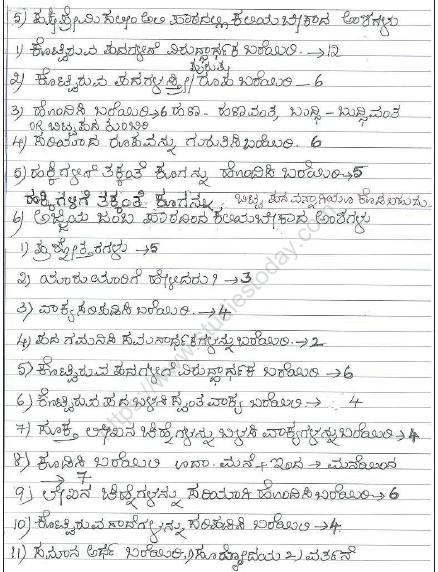 5) ಪಕ್ಷಿಪ್ರೇಮಿ ಸಲೀಂ ಅಲಿ ಪಾಠದಲ್ಲಿ ಕಲಿಯಬೇಕಾದ ಅಂಶಗಳು
1) ಕೊಟ್ಟಿರುವ ಪದಗಳಿಗೆ ವಿರುದ್ಧಾರ್ಥಕ ಬರೆಯಿರಿ. → 12
2) ಕೊಟ್ಟಿರುವ ಪದಗಳ ಸ್ತ್ರೀ/ ರೂಪ ಬರೆಯಿರಿ – 6
3) ಹೊಂದಿಸಿ ಬರೆಯಿರಿ → 6 ಹಣ - ಹಣವಂತ, ಬುದ್ಧಿ - ಬುದ್ಧಿವಂತ
OR ಬಿಟ್ಟ ಪದ ತುಂಬಿರಿ
4) ಸರಿಯಾದ ರೂಪವನ್ನು ಗುರುತಿಸಿ ಬರೆಯಿರಿ. 6
5) ಹಕ್ಕಿಗಳಿಗೆ ತಕ್ಕಂತೆ ಕೂಗನ್ನು ಹೊಂದಿಸಿ ಬರೆಯಿರಿ → 5
ಹಕ್ಕಿಗಳಿಗೆ ತಕ್ಕಂತೆ ಕೂಗನ್ನು ಬಿಟ್ಟ ಪದವನ್ನಾಗಿಯೂ ಕೊಡಬಹುದು
6) ಅಜ್ಜಿಯ ಜಂಬ ಪಾಠದಿಂದ ಕಲಿಯಬೇಕಾದ ಅಂಶಗಳು
1) ಪ್ರಶ್ನೋತ್ತರಗಳು → 5
2) ಯಾರು ಯಾರಿಗೆ ಹೇಳಿದರು? → 3
3) ವಾಕ್ಯ ಸರಿಪಡಿಸಿ ಬರೆಯಿರಿ. → 4
4) ಪದ ಗಮನಿಸಿ ಸಮಾನಾರ್ಥಕಗಳನ್ನು ಬರೆಯಿರಿ. → 2
5) ಕೊಟ್ಟಿರುವ ಪದಗಳಿಗೆ ವಿರುದ್ಧಾರ್ಥಕ ಬರೆಯಿರಿ → 6
6) ಕೊಟ್ಟಿರುವ ಪದ ಬಳಸಿ ಸ್ವಂತ ವಾಕ್ಯ ಬರೆಯಿರಿ → 4
7) ಸೂಕ್ತ ಲೇಖನ ಚಿಹ್ನೆಗಳನ್ನು ಬಳಸಿ ವಾಕ್ಯಗಳನ್ನು ಬರೆಯಿರಿ → 4
8) ಕೂಡಿಸಿ ಬರೆಯಿರಿ ಉದಾ. ಮನೆ + ಇಂದ → ಮನೆಯಿಂದ
→ 7
9) ಲೇಖನ ಚಿಹ್ನೆಗಳನ್ನು ಸರಿಯಾಗಿ ಹೊಂದಿಸಿ ಬರೆಯಿರಿ → 6
10) ಕೊಟ್ಟಿರುವ ಗಾದೆಗಳನ್ನು ಸರಿಪಡಿಸಿ ಬರೆಯಿರಿ → 4
11) ಸಮಾನ ಅರ್ಥ ಬರೆಯಿರಿ. 1) ಸೂರ್ಯೋದಯ 2) ವರ್ತನೆ